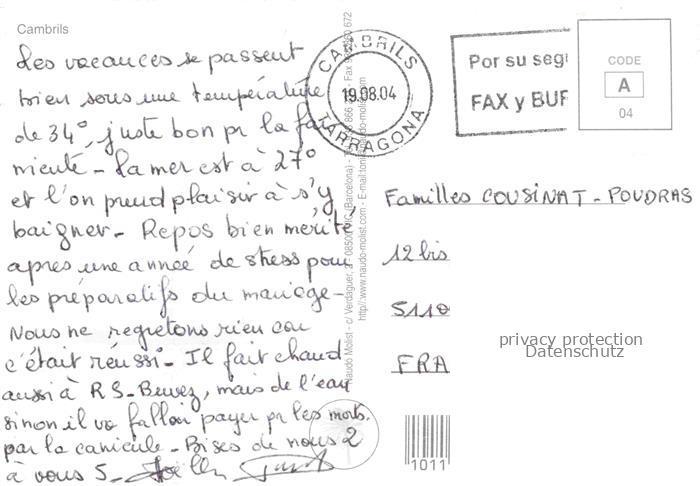 Cambrils
Les vacances se passent
bien sous une température
de 34°, juste bon pr la fa
niente - la mer est à 27°
et l'on prend plaisir à s'y
baigner - Repos bien mérité
après une année de stress pour
les préparatifs du mariage -
Nous ne regretons rien car
c'était réussi - Il fait chaud
aussi à R S - Buvez, mais de l'eau
sinon il va falloir payer pr les morts.
par la canicule - Bises de nous 2
à vous 5 -
CAMBRILS
19.08.04
TARRAGONA
Por su segu
FAX y BUF
CODE
A
04
Naudo Molist - c/ Verdaguer, 2 - 08500 VIC (Barcelona)
http//:www.naudo-molist.com - E-mail:
Familles COUSINAT - POUDRAS
12 bis
5110
FRA
privacy protection
Datenschutz
1011